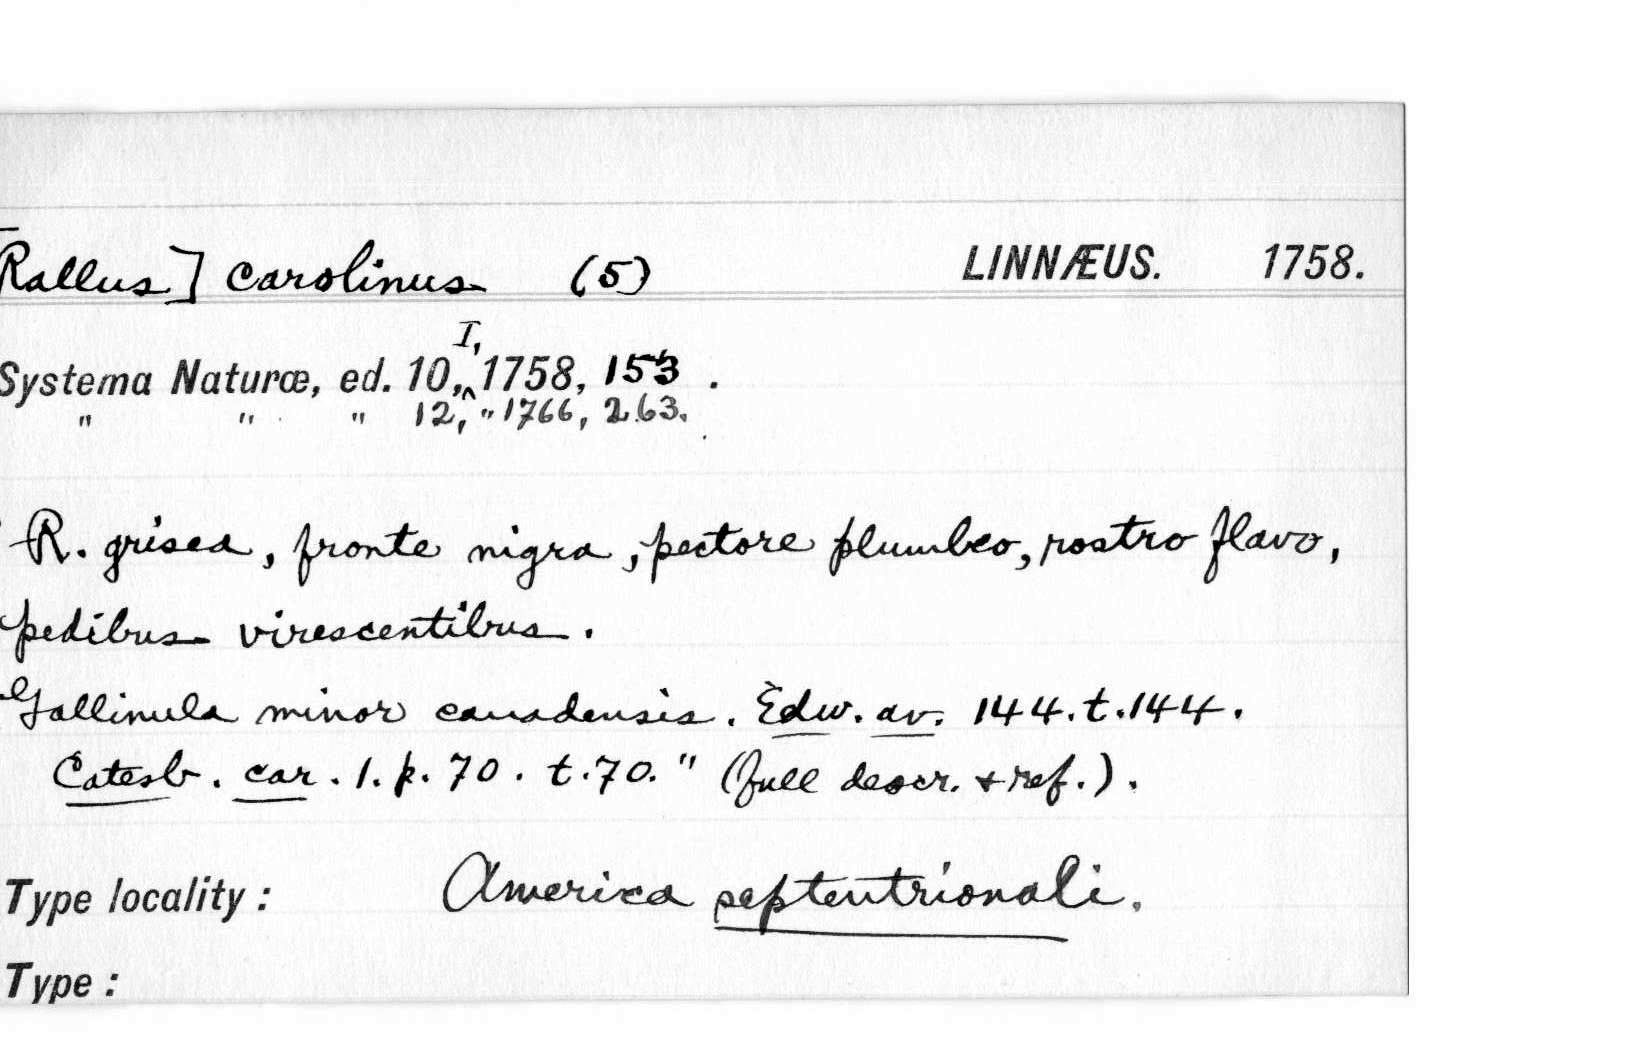 [Rallus] carolinus (5) LINNÆUS. 1758.
Systema Naturæ, ed. 10, I, 1758, 153.
" " " 12, " 1766, 263.
R. grisea, fronte nigra, pectore plumbeo, rostro flavo,
pedibus virescentibus.
Gallinula minor canadensis. Edw. av. 144. t. 144.
Catesb. car. 1. p. 70. t. 70." (full descr. & ref.).
Type locality: America septentrionali.
Type: